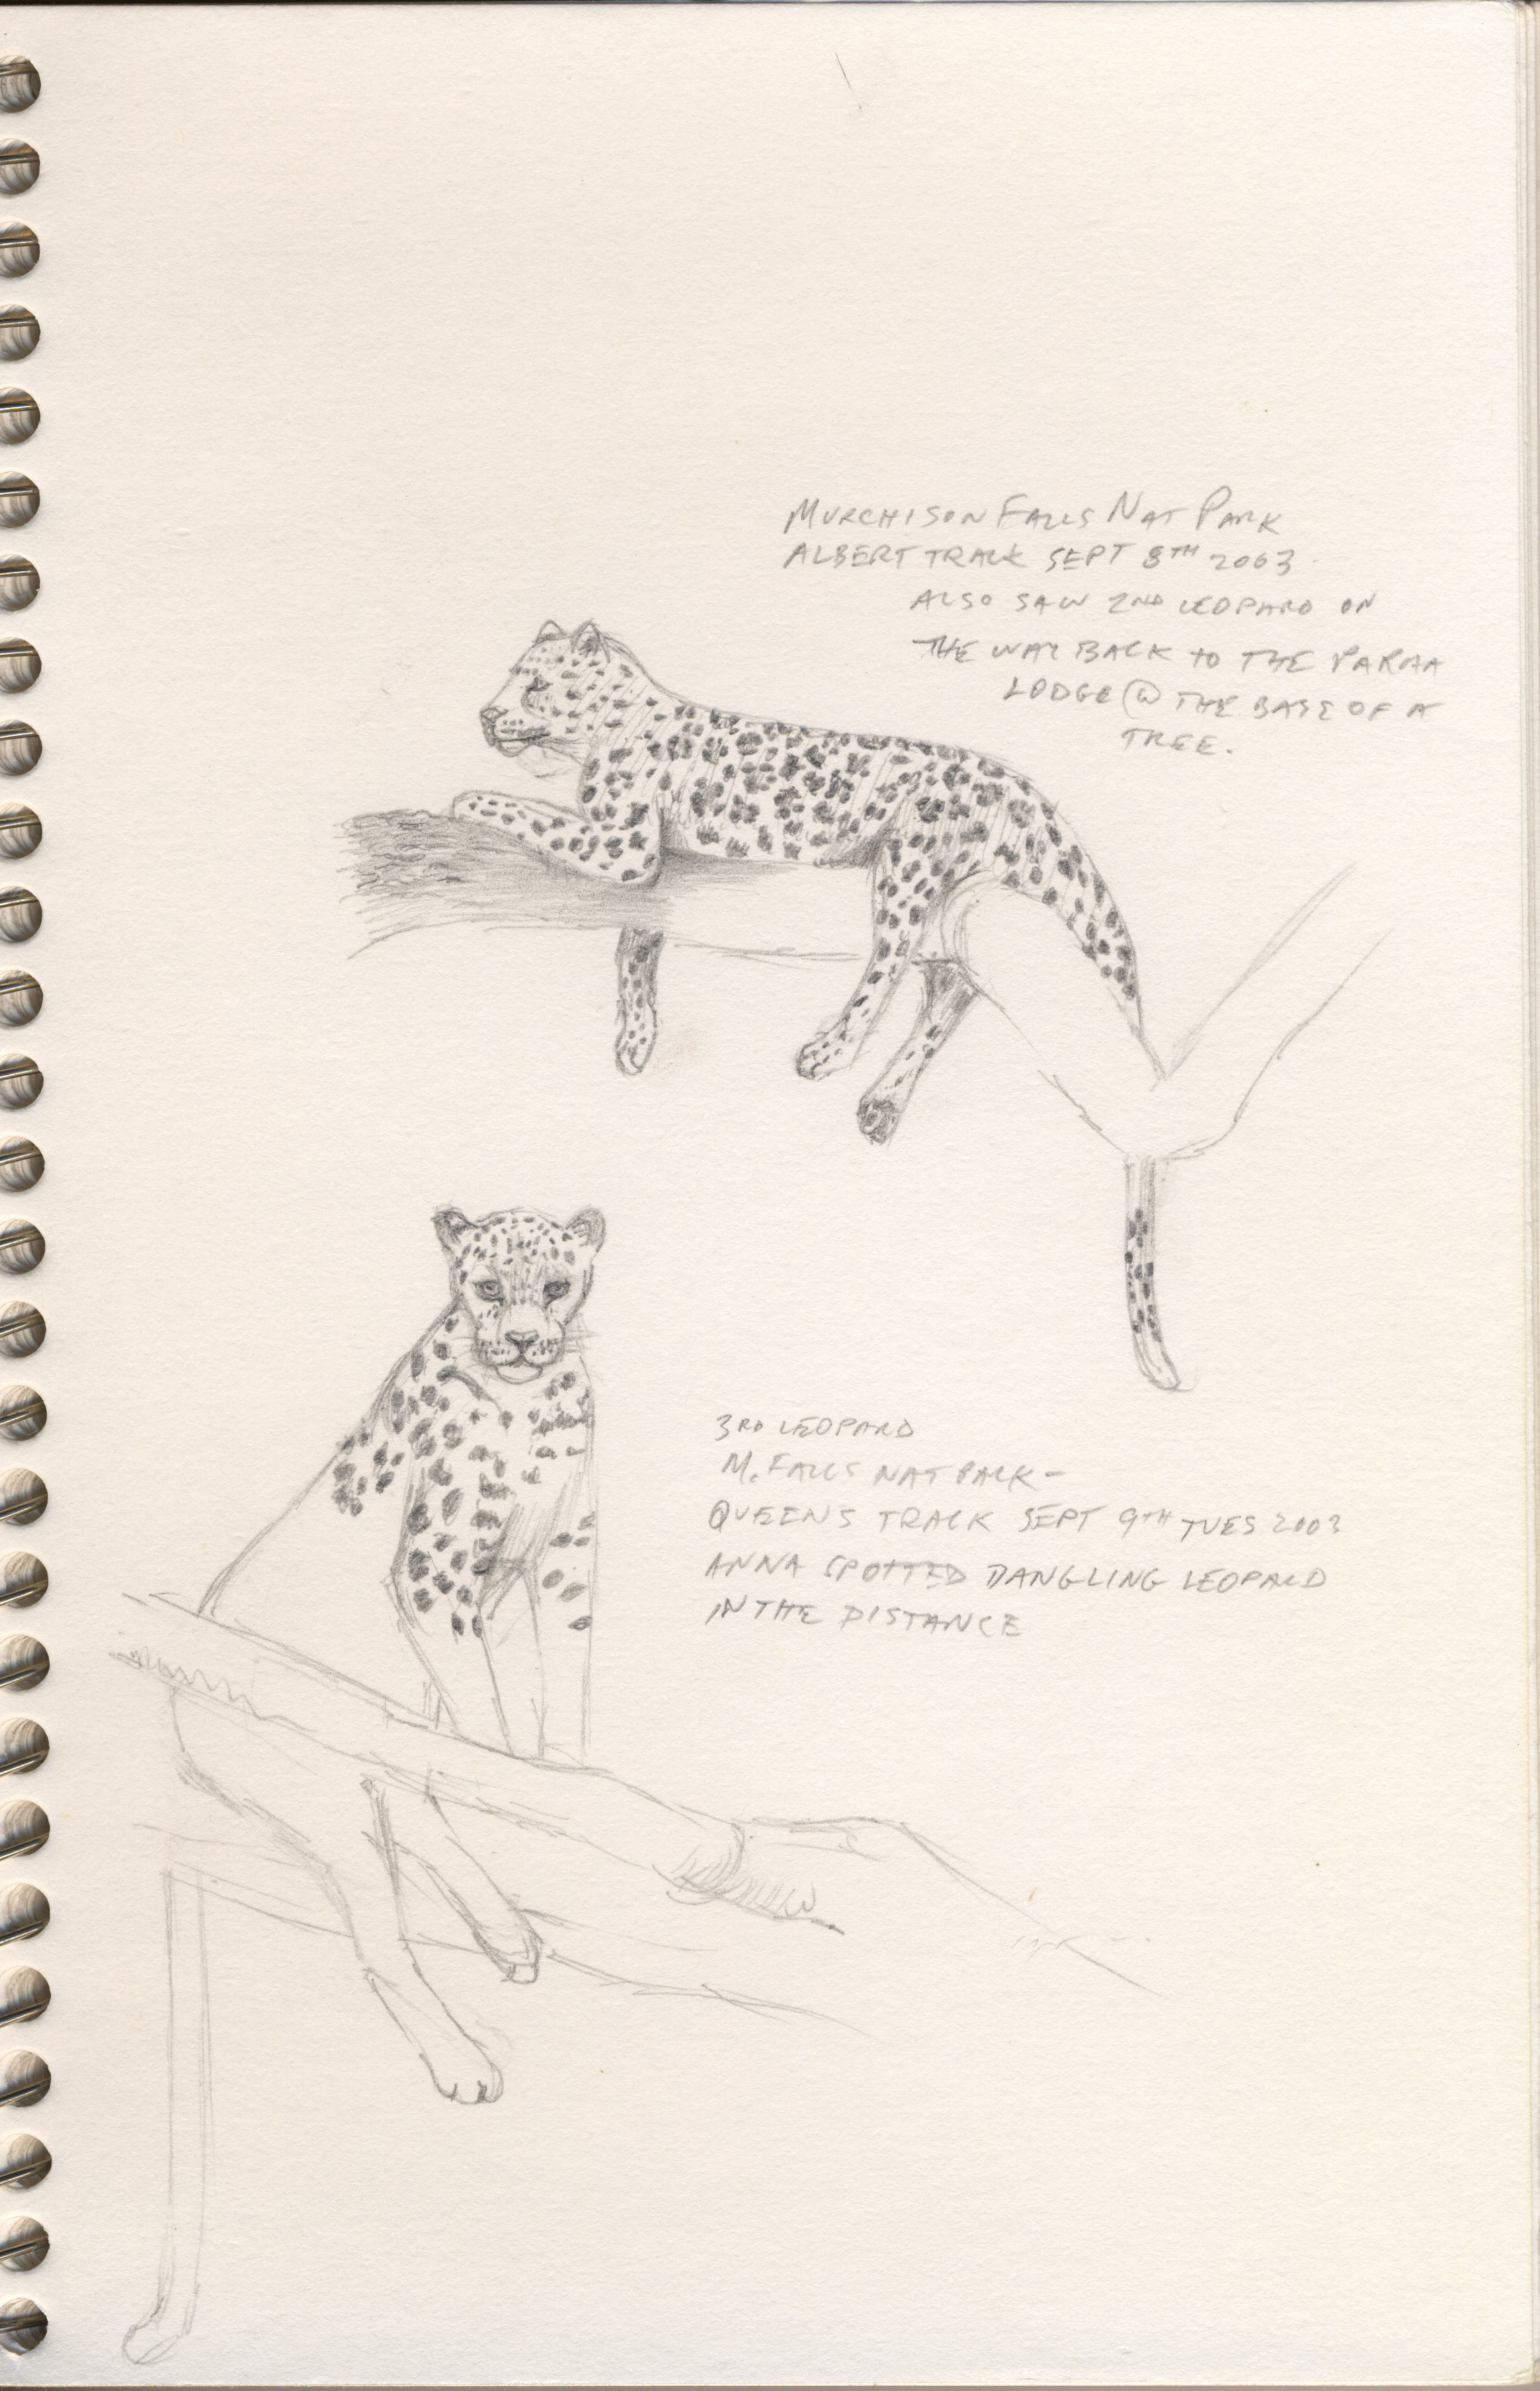 MURCHISON FALLS NAT PARK
ALBERT TRACK SEPT 8TH 2003
ALSO SAW 2ND LEOPARD ON
THE WAY BACK TO THE PARAA
LODGE @ THE BASE OF A
TREE.
3RD LEOPARD
M. FALLS NAT PARK -
QUEENS TRACK SEPT 9TH TUES 2003
ANNA SPOTTED DANGLING LEOPARD
IN THE DISTANCE